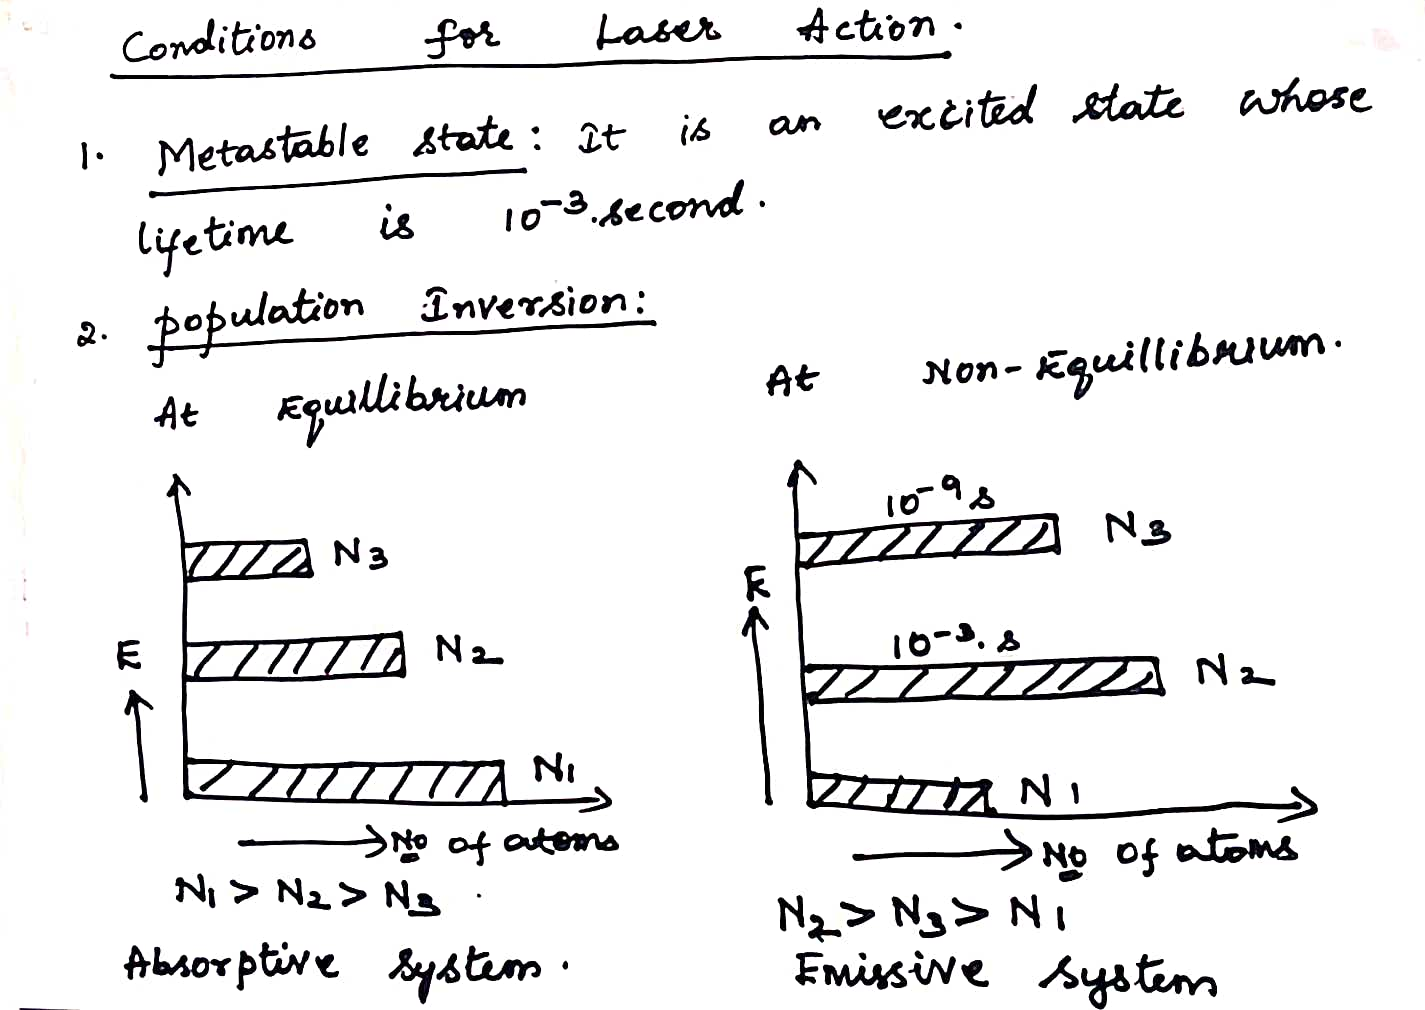 Conditions for Laser Action.
1. Metastable state: It is an excited state whose
lifetime is 10⁻³.second.
2. population Inversion:
At Equillibrium
At Non-Equillibrium.
N3
E
N2
N1
No of atoms
N1 > N2 > N3
Absorptive system.
10⁻⁹ s
N3
E
10⁻³. s
N2
N1
No of atoms
N2 > N3 > N1
Emissive system